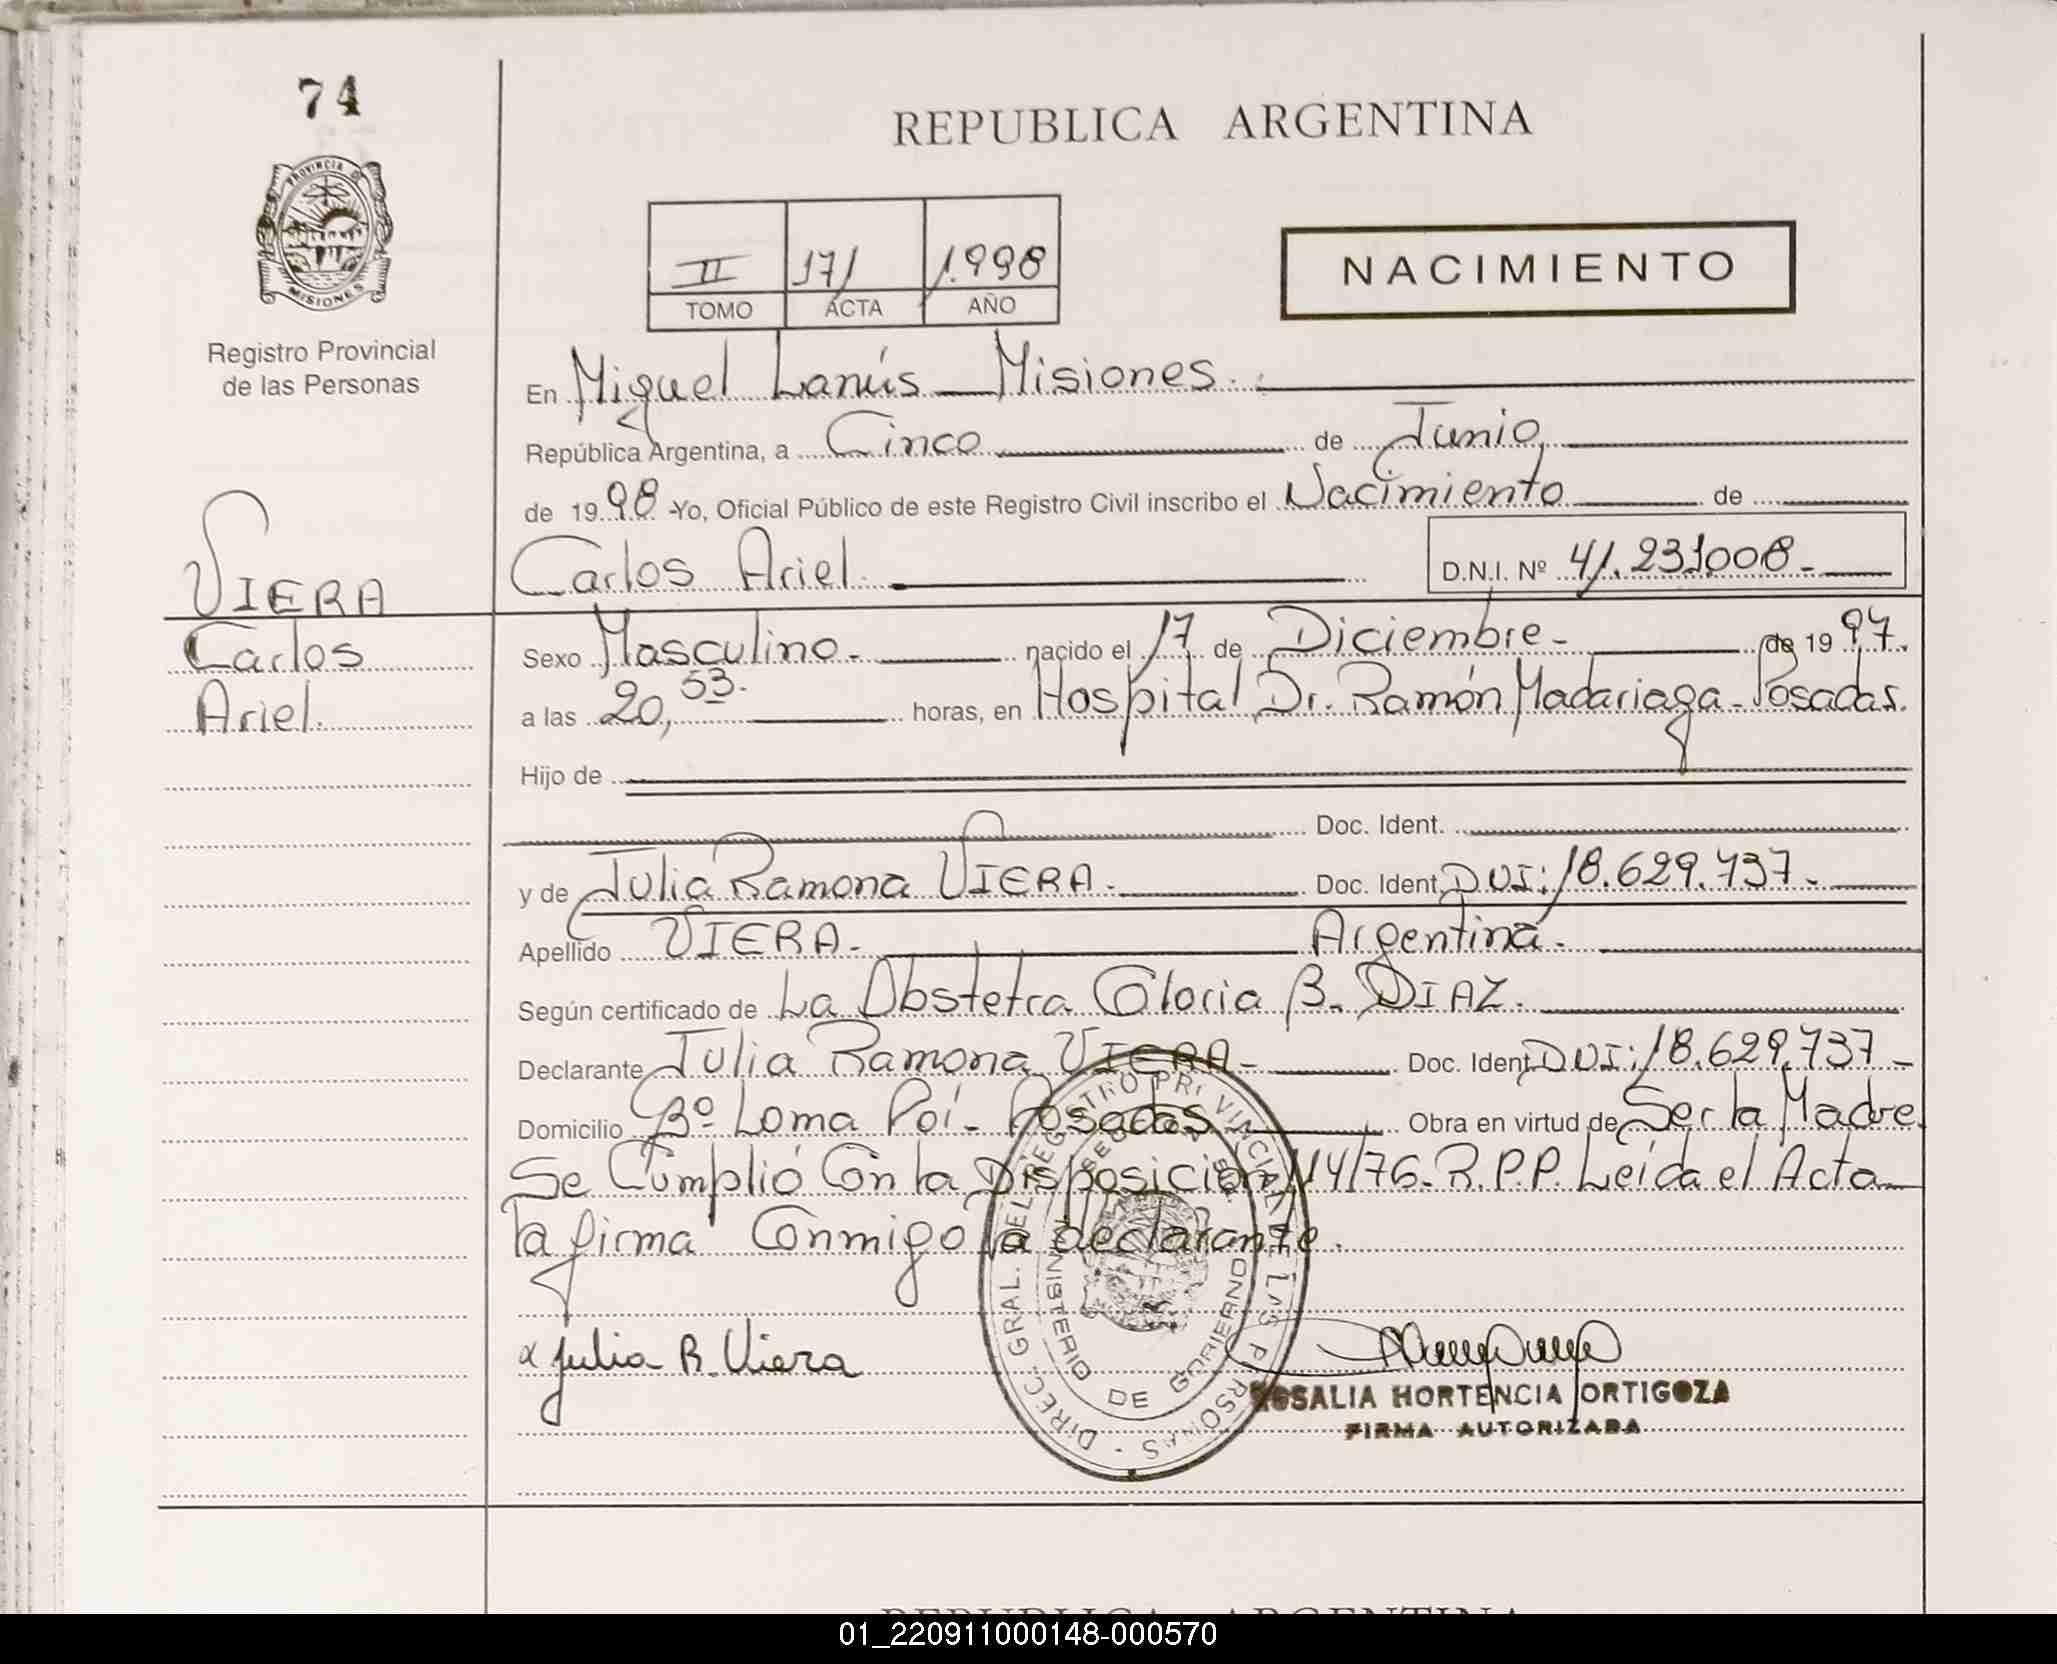 74
REPUBLICA ARGENTINA
PROVINCIA D
MISIONES
Registro Provincial
de las Personas
II 171 1.998
TOMO ACTA AÑO
NACIMIENTO
En Miguel Lanús - Misiones.
República Argentina, a Cinco de Junio,
de 1998 -Yo, Oficial Público de este Registro Civil inscribo el Nacimiento de
Carlos Ariel. D.N.I. Nº 41.231008.-
VIERA
Carlos
Ariel.
Sexo Masculino.- nacido el 17 de Diciembre- de 1997.
a las 20,53. horas, en Hospital Dr. Ramón Madariaga - Posadas.
Hijo de
Doc. Ident.
y de Julia Ramona VIERA.- Doc. Ident. DUI: 18.629.737.-
Apellido VIERA.- Argentina.-
Según certificado de La Obstetra Gloria B. DIAZ.-
Declarante Julia Ramona VIERA- Doc. Ident. DUI: 18.629.737-
Domicilio Bº Loma Poí- Posadas Obra en virtud de Ser la Madre.
Se Cumplió Con la Disposición 114/76- R.P.P. Leída el Acta
la firma Conmigo la declarante.
x Julia R. Viera
DIREC. GRAL. DEL REGISTRO PROVINCIAL DE LAS PERSONAS
MINISTERIO DE GOBIERNO
ROSALIA HORTENCIA ORTIGOZA
FIRMA AUTORIZADA
REPUBLICA ARGENTINA
01_220911000148-000570